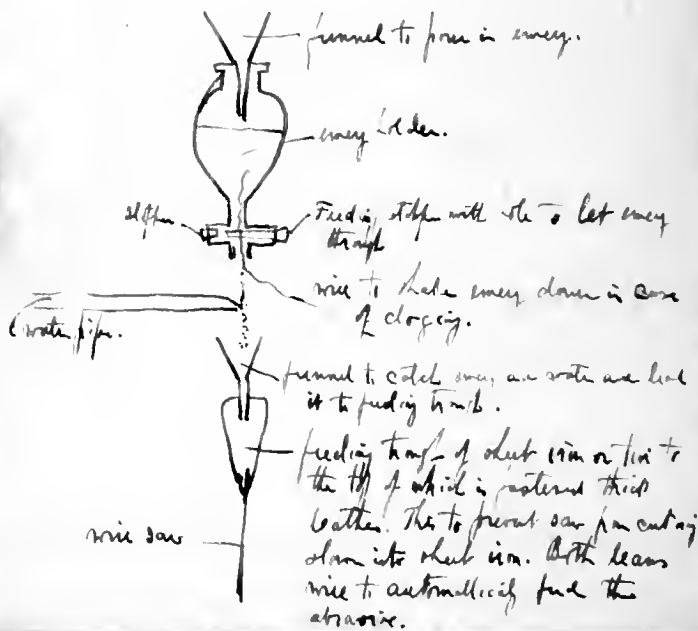 funnel to pour in emery.
emery holder.
stopper
Feeding stopper with hole to let emery
through
wire to shake emery down in case
of clogging.
water pipe.
funnel to catch emery and water and lead
it to feeding trough.
feeding trough of sheet iron or tin to
the top of which is fastened thick
leather. This to prevent saw from cutting
down into sheet iron. Both leave
wire to automatically feed the
abrasive.
wire saw